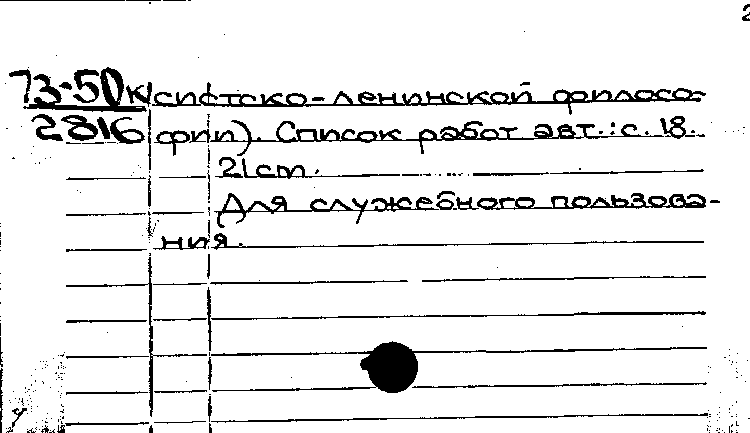 2
73-50к систско-ленинской филосо-
2816 фии). Список работ авт.: с. 18.
21cm.
Для служебного пользова-
ния.